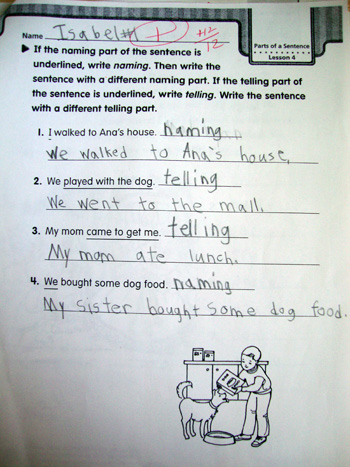 Name Isabel #1 +12/12
Parts of a Sentence
Lesson 4
▶ If the naming part of the sentence is
underlined, write naming. Then write the
sentence with a different naming part. If the telling part of
the sentence is underlined, write telling. Write the sentence
with a different telling part.
1. I walked to Ana's house. naming
We walked to Ana's house.
2. We played with the dog. telling
We went to the mall.
3. My mom came to get me. telling
My mom ate lunch.
4. We bought some dog food. naming
My sister bought some dog food.